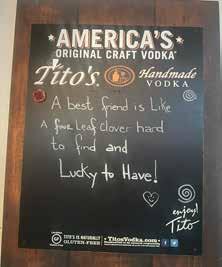 AMERICA'S
ORIGINAL CRAFT VODKA
Tito's. Handmade
VODKA
A best friend is Like
A four Leaf clover hard
to find and
Lucky to Have!
enjoy!
Tito
TITO'S IS NATURALLY
GLUTEN-FREE
TitosVodka.com